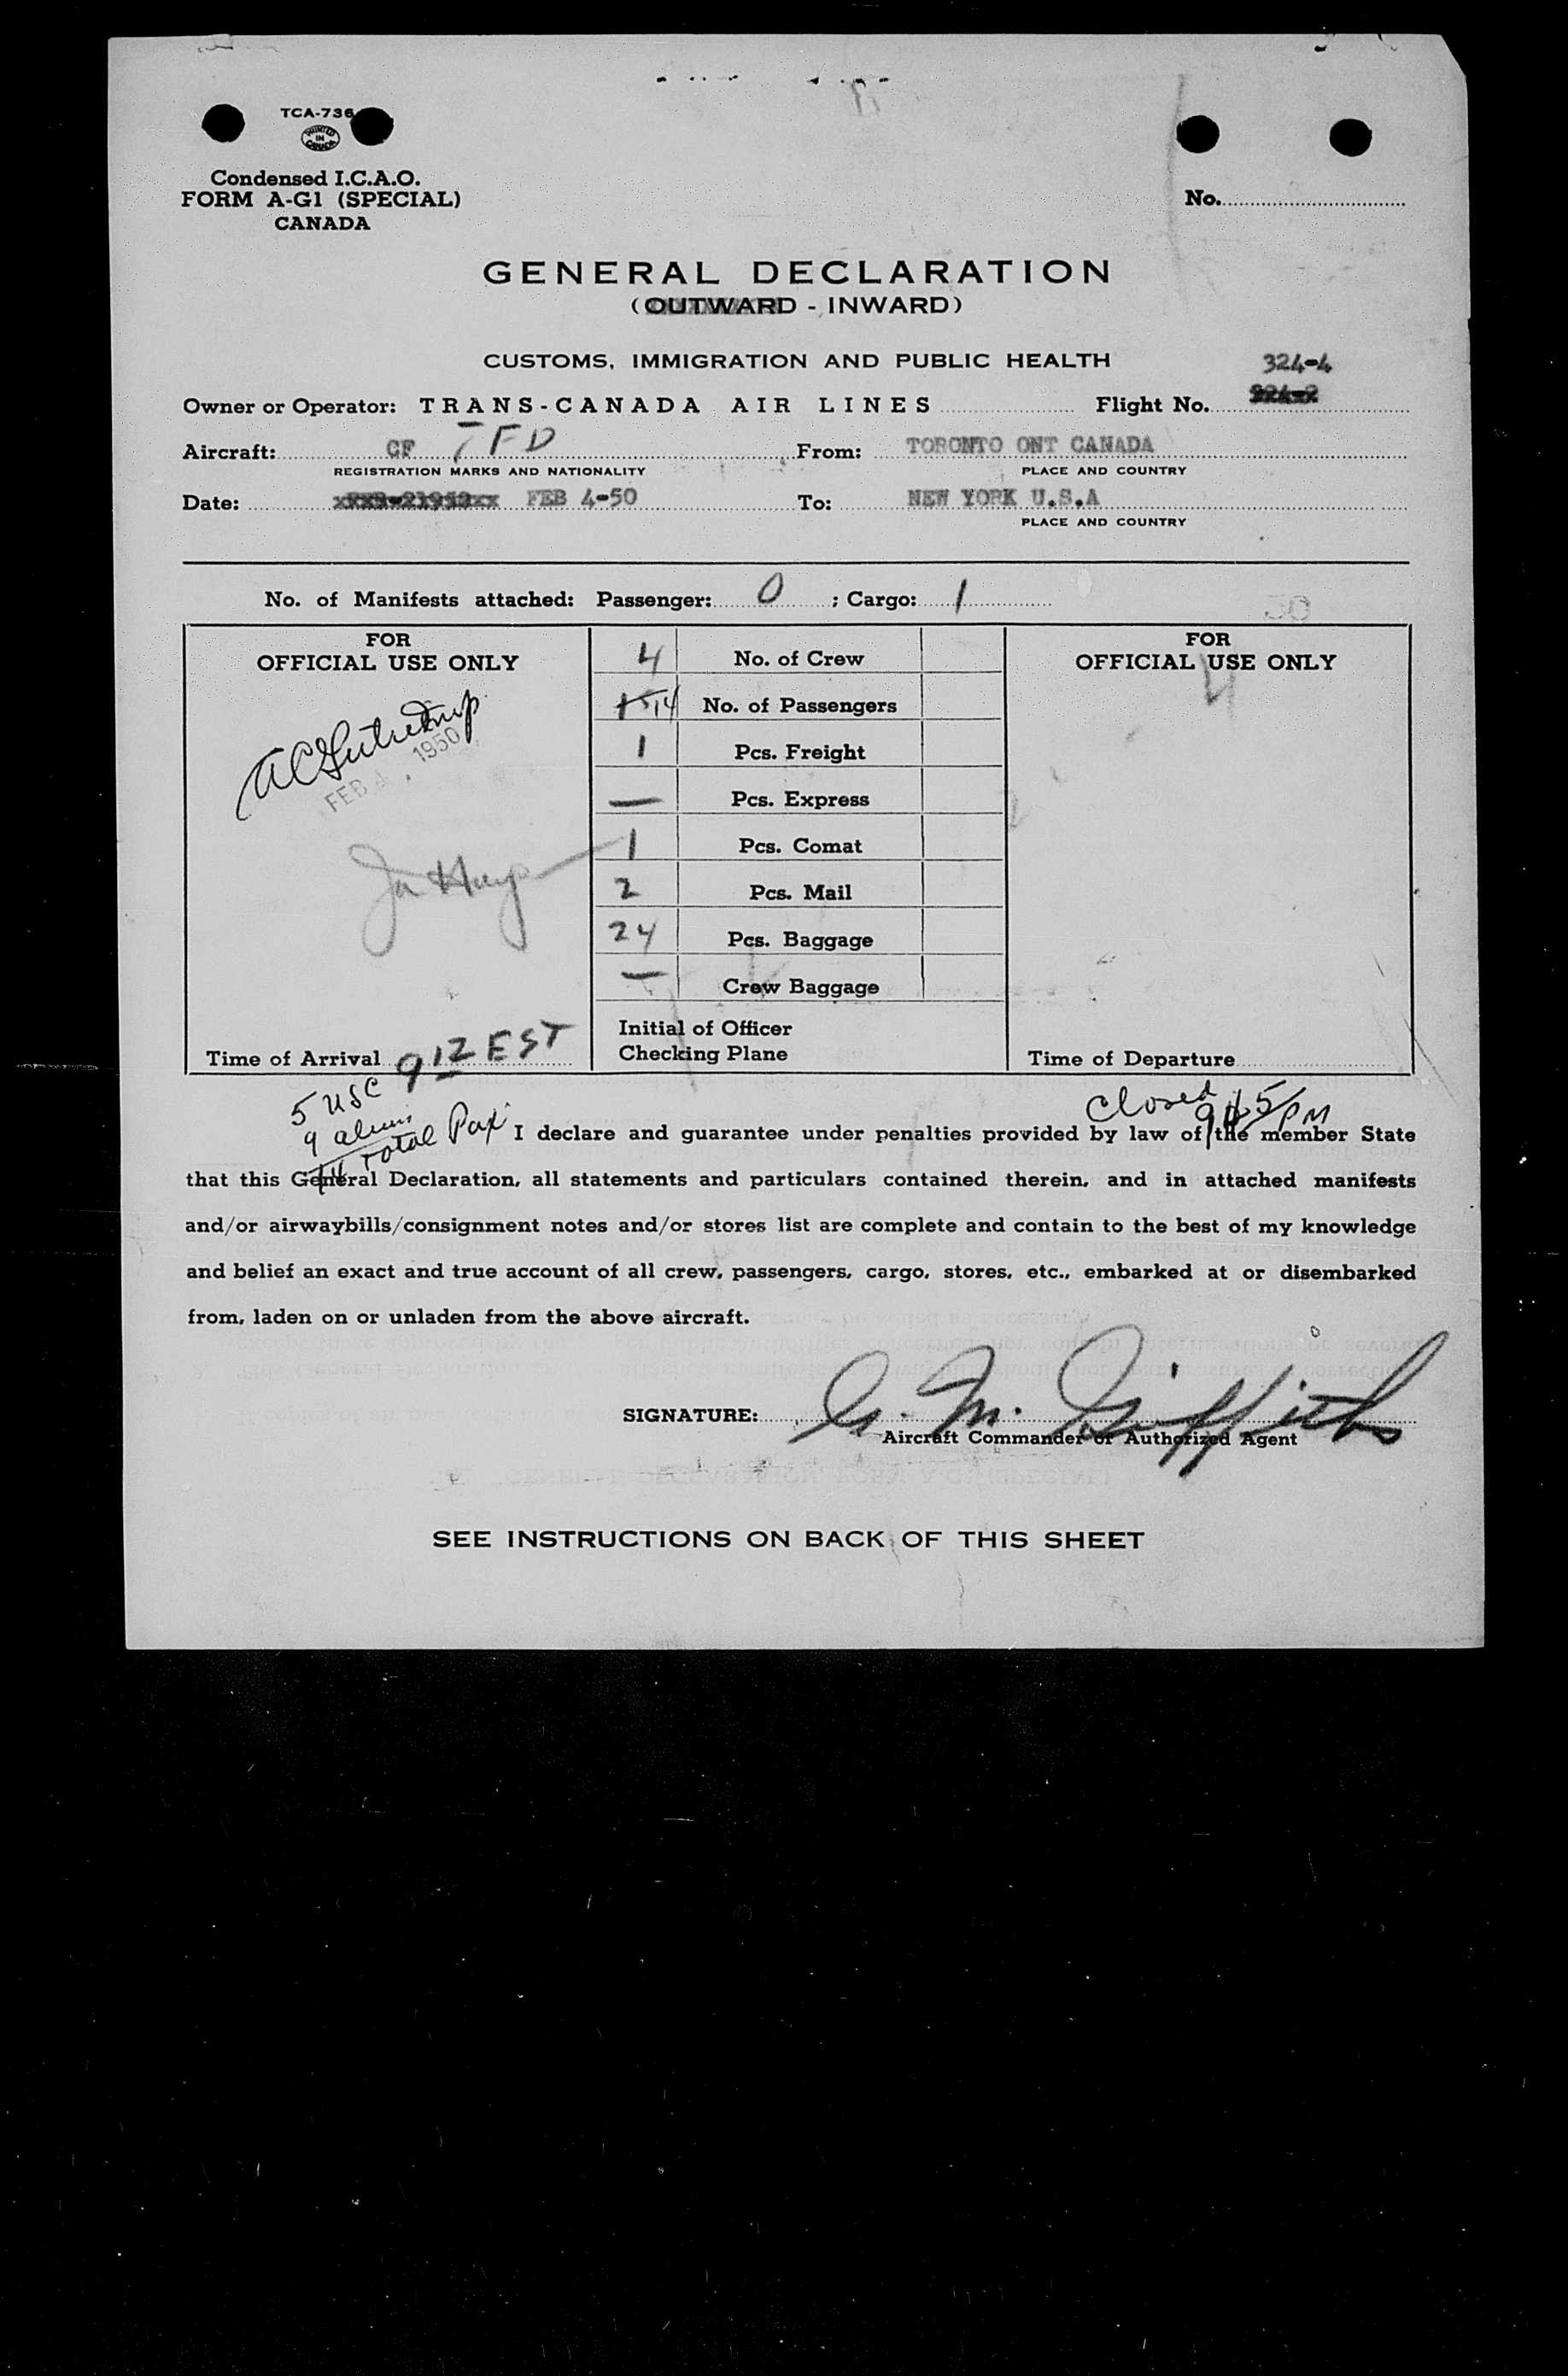 TCA-736
PRINTED IN CANADA
Condensed I.C.A.O.
FORM A-G1 (SPECIAL)
CANADA
No.
GENERAL DECLARATION
(OUTWARD - INWARD)
CUSTOMS, IMMIGRATION AND PUBLIC HEALTH
324-4
Owner or Operator: TRANS-CANADA AIR LINES Flight No. 324-2
Aircraft: CF TFD From: TORONTO ONT CANADA
REGISTRATION MARKS AND NATIONALITY PLACE AND COUNTRY
Date: FEB 4-50 To: NEW YORK U.S.A
PLACE AND COUNTRY
No. of Manifests attached: Passenger: 0 ; Cargo: 1
FOR
OFFICIAL USE ONLY
FEB 4, 1950
Time of Arrival 9 12 EST
4 No. of Crew
15 14 No. of Passengers
1 Pcs. Freight
— Pcs. Express
1 Pcs. Comat
2 Pcs. Mail
24 Pcs. Baggage
— Crew Baggage
Initial of Officer
Checking Plane
FOR
OFFICIAL USE ONLY
Time of Departure
5 USC
9 aliens
14 Total Pax
Closed
915 PM
I declare and guarantee under penalties provided by law of the member State
that this General Declaration, all statements and particulars contained therein, and in attached manifests
and/or airwaybills/consignment notes and/or stores list are complete and contain to the best of my knowledge
and belief an exact and true account of all crew, passengers, cargo, stores, etc., embarked at or disembarked
from, laden on or unladen from the above aircraft.
SIGNATURE: G. M. Griffiths
Aircraft Commander or Authorized Agent
SEE INSTRUCTIONS ON BACK OF THIS SHEET